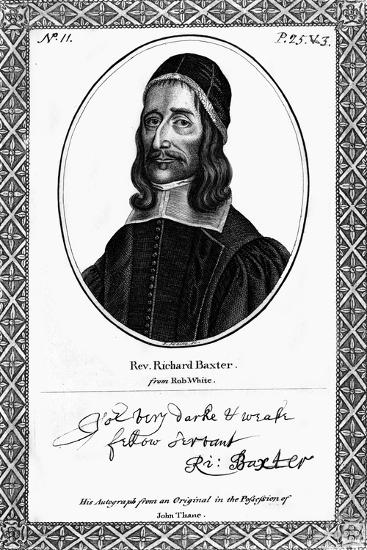 No. 11.
P. 25. V. 3.
Rev. Richard Baxter.
from Rob White.
Yor very darke & weake
fellow servant
Ri: Baxter
His Autograph from an Original in the Posseſsion of
John Thane.